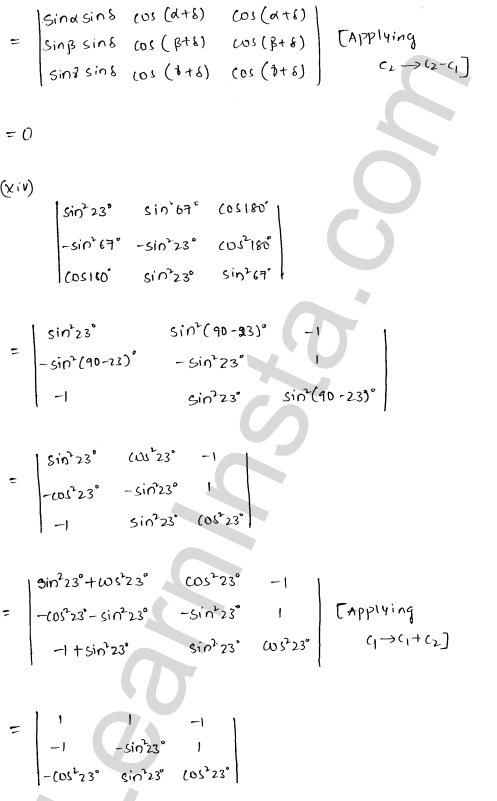 = | sinα sinδ cos (α+δ) cos (α+δ) |
| sinβ sinδ cos (β+δ) cos (β+δ) | [Applying
| sinγ sinδ cos (γ+δ) cos (γ+δ) | C₂ → C₂-C₁]
= 0
(xiv)
| sin²23° sin²67° cos180° |
| -sin²67° -sin²23° cos²180° |
| cos180° sin²23° sin²67° |
= | sin²23° sin²(90-23)° -1 |
| -sin²(90-23)° -sin²23° 1 |
| -1 sin²23° sin²(90-23)° |
= | sin²23° cos²23° -1 |
| -cos²23° -sin²23° 1 |
| -1 sin²23° cos²23° |
= | sin²23°+cos²23° cos²23° -1 |
| -cos²23°-sin²23° -sin²23° 1 | [Applying
| -1+sin²23° sin²23° cos²23° | C₁→C₁+C₂]
= | 1 1 -1 |
| -1 -sin²23° 1 |
| -cos²23° sin²23° cos²23° |
LearnInsta.com